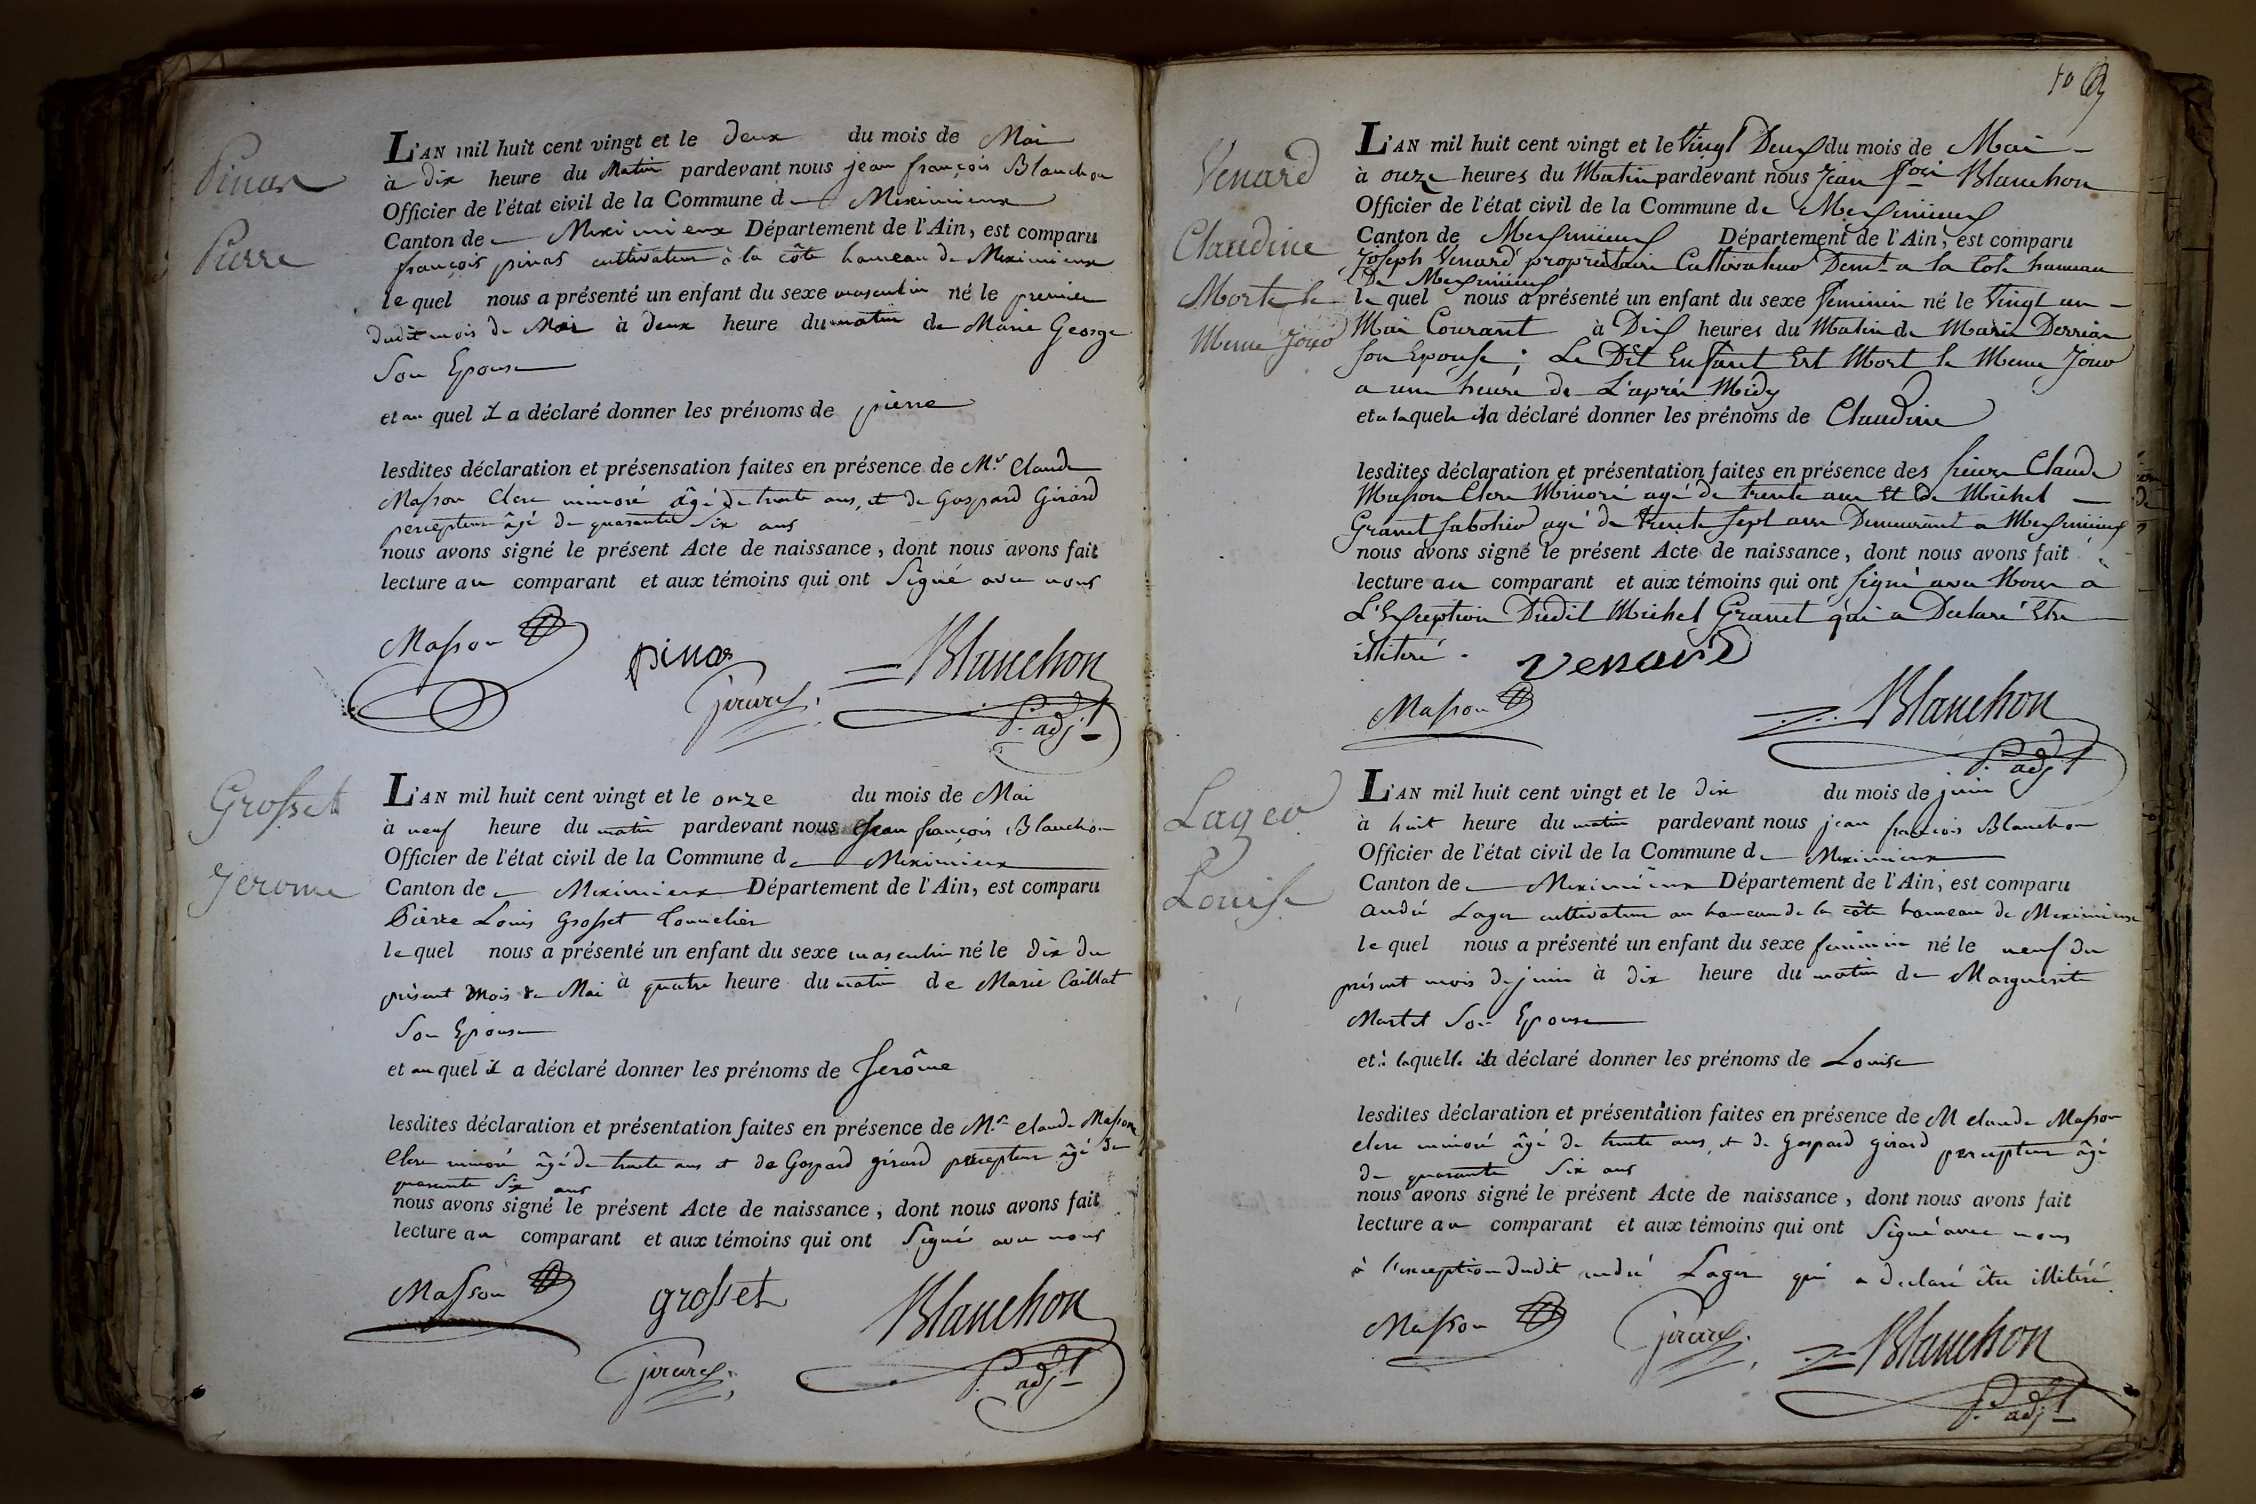 Pinas
Pierre
L'AN mil huit cent vingt et le deux du mois de Mai
à dix heure du Matin pardevant nous jean françois Blanchon
Officier de l'état civil de la Commune de Meximieux
Canton de Meximieux Département de l'Ain, est comparu
françois pinas cultivateur à la côte hameau de Meximieux
le quel nous a présenté un enfant du sexe masculin né le premier
dudit mois de Mai à deux heure du matin de Marie George
Son Epouse
et au quel il a déclaré donner les prénoms de pierre
lesdites déclaration et présensation faites en présence de Mr Claude
Masson Clerc minoré âgé de trente ans, et de Gaspard Girard
percepteur âgé de quarante Six ans
nous avons signé le présent Acte de naissance, dont nous avons fait
lecture au comparant et aux témoins qui ont Signé avec nous
Masson
pinas
Blanchon
Girard
P. adjt
Grosset
Jerome
L'AN mil huit cent vingt et le onze du mois de Mai
à neuf heure du matin pardevant nous Jean françois Blanchon
Officier de l'état civil de la Commune de Meximieux
Canton de Meximieux Département de l'Ain, est comparu
Pierre Louis Grosset Tonnelier
le quel nous a présenté un enfant du sexe masculin né le dix du
présent Mois de Mai à quatre heure du matin de Marie Caillat
Son Epouse
et au quel il a déclaré donner les prénoms de Jerôme
lesdites déclaration et présentation faites en présence de Mr Claude Masson
Clerc minoré âgé de trente ans et de Gaspard girard percepteur âgé de
quarante Six ans
nous avons signé le présent Acte de naissance, dont nous avons fait
lecture au comparant et aux témoins qui ont Signé avec nous
Masson
grosset
Blanchon
Girard
P. adjt
10
Venard
Claudine
Morte le
Meme Jour
L'AN mil huit cent vingt et le Vingt Deux du mois de Mai
à onze heures du Matin pardevant nous Jean fois Blanchon
Officier de l'état civil de la Commune de Meximieux
Canton de Meximieux Département de l'Ain, est comparu
Joseph Venard propriétaire Cultivateur Demt a la Cote hameau
De Meximieux
le quel nous a présenté un enfant du sexe féminin né le Vingt un
Mai Courant à Dix heures du Matin de Marie Derrias
son Epouse; Le Dit Enfant Est Mort le Meme Jour
a une heure de L'après Midy
et a laquele il a déclaré donner les prénoms de Claudine
lesdites déclaration et présentation faites en présence des sieurs Claude
Masson Clerc Minoré agé de trente ans Et De Michel
Granet Sabotier agé de trente sept ans Demeurant a Meximieux
nous avons signé le présent Acte de naissance, dont nous avons fait
lecture au comparant et aux témoins qui ont signé avec Nous à
L'Exception Dudit Michel Granet qui a Declaré Etre
illiteré.
Venard
Masson
Blanchon
P. adjt
Lager
Louise
L'AN mil huit cent vingt et le dix du mois de juin
à huit heure du matin pardevant nous jean françois Blanchon
Officier de l'état civil de la Commune de Meximieux
Canton de Meximieux Département de l'Ain, est comparu
andré Lager cultivateur au hameau de la côte hameau de Meximieux
le quel nous a présenté un enfant du sexe feminin né le neuf du
présent mois de juin à dix heure du matin de Marguerite
Martet Son Epouse
et à laquelle il a déclaré donner les prénoms de Louise
lesdites déclaration et présentation faites en présence de M claude Masson
clerc minoré âgé de trente ans, et de Gaspard girard percepteur âgé
de quarante Six ans
nous avons signé le présent Acte de naissance, dont nous avons fait
lecture au comparant et aux témoins qui ont Signé avec nous
à l'exception dudit andré Lager qui a declaré être illitéré
Masson
Girard
Blanchon
P. adjt